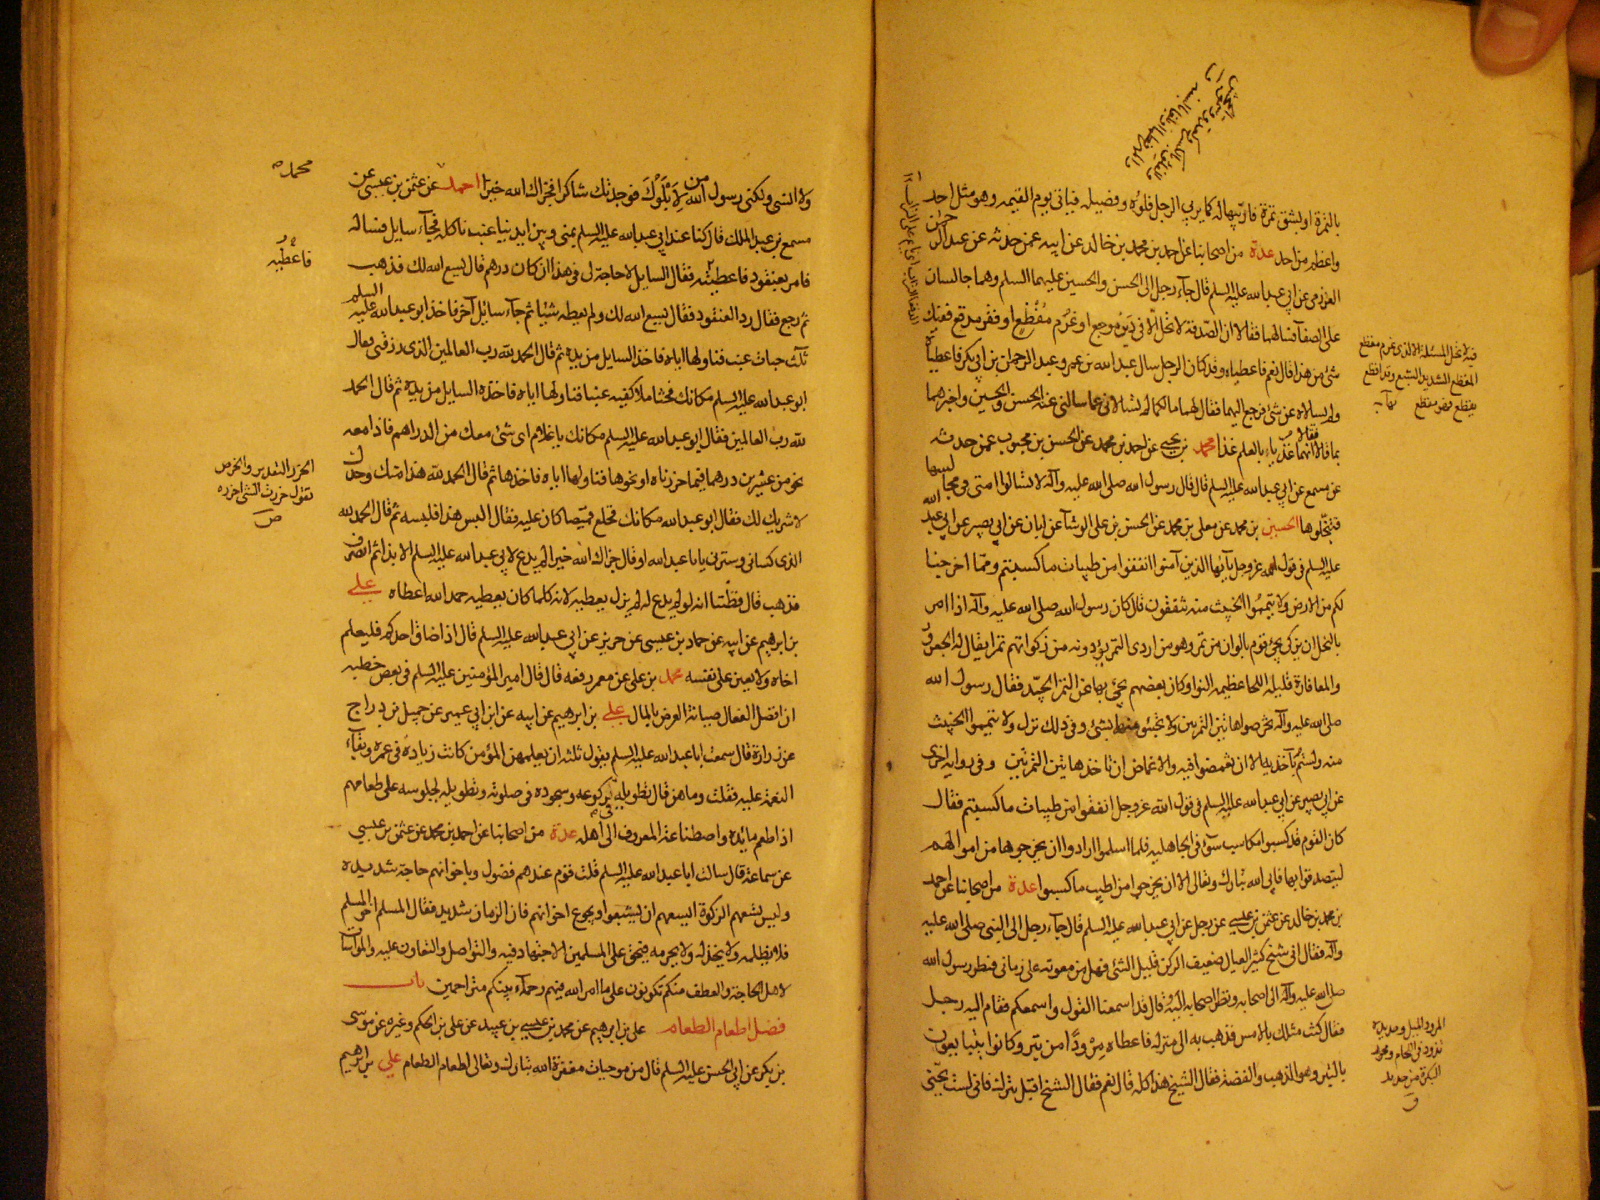 بالتمرة او بشق تمرة فاربيها له كما يربي الرجل فلوه وفصيله فيأتي يوم القيمه وهو مثل احد
واعظم من احد عدة من اصحابنا عن احمد بن محمد بن خالد عن ابيه عمن حدثه عن عبد الرحمن
العرزمي عن ابي عبد الله عليه السلم قال جآء رجل الى الحسن والحسين عليهما السلم وهما جالسان
على الصفا فسالهما فقالا ان الصدقة لا تحل الا في دين موجع او غرم مفظع او فقر مدقع ففيك
شئ من هذا قال نعم فاعطياه وقد كان الرجل سال عبد الله بن عمر وعبد الرحمن بن ابي بكر فاعطياه
ولم يسالاه عن شئ فرجع اليهما فقال لهما ما لكما لم تسالاني عما سالني عنه الحسن والحسين واخبرهما
بما قالا فقالا انهما غذيا بالعلم غذآ محمد بن يحيى عن احمد بن محمد عن الحسن بن محبوب عمن حدثه
عن مسمع عن ابي عبد الله عليه السلم قال قال رسول الله صلى الله عليه وآله لا تسالوا امتي في مجالسها
فتبخلوها الحسين بن محمد عن معلى بن محمد عن الحسن بن علي الوشآ عن ابان عن ابي بصير عن ابي عبد الله
عليه السلم في قول الله عز وجل يا ايها الذين آمنوا انفقوا من طيبات ما كسبتم ومما اخرجنا
لكم من الارض ولا تيمموا الخبيث منه تنفقون قال كان رسول الله صلى الله عليه وآله اذا امر
بالنخل ان يزكى يجئ قوم بالوان من تمر وهو من اردى التمر يؤدونه من زكواتهم تمرا يقال له الجعرور
والمعافارة قليلة اللحا عظيمة النوا وكان بعضهم يجئ بها عن التمر الجيد فقال رسول الله
صلى الله عليه وآله لا تخرصوا هاتين التمرتين ولا تجيئو منهما بشئ وفي ذلك نزل ولا تيمموا الخبيث
منه ولستم بآخذيه الا ان تغمضوا فيه والاغماض ان تاخذ هاتين التمرتين وفي رواية اخرى
عن ابي بصير عن ابي عبد الله عليه السلم في قول الله عز وجل انفقوا من طيبات ما كسبتم فقال
كان القوم قد كسبوا مكاسب سوء في الجاهلية فلما اسلموا ارادوا ان يخرجوها من اموالهم
ليتصدقوا بها فابى الله تبارك وتعالى الا ان يخرجوا من اطيب ما كسبوا عدة من اصحابنا عن احمد
بن محمد بن خالد عن عثمن بن عيسى عن رجل عن ابي عبد الله عليه السلم قال جآء رجل الى النبي صلى الله عليه
وآله فقال اني شيخ كثير العيال ضعيف الركن قليل الشئ فهل من معونة على زماني فنظر رسول الله
صلى الله عليه وآله الى اصحابه ونظر اصحابه اليه وقال قد اسمعنا القول واسمعكم فقام اليه رجل
فقال كنت مثلك بالامس فذهب به الى منزله فاعطاه مرودا من تبر وكانوا يتبايعون
بالتبر وهو الذهب والفضة فقال الشيخ هذا كله قال نعم فقال الشيخ اقبل تبرك فاني لست بجني
فيه لا تحل المسئلة الا لذي غرم مفظع
المفظع الشديد الشنيع وقد افظع
يفظع فهو مفظع نهاية
المرود الميل وحديدة
تدور في اللجام ومحور
البكرة من حديد
ق
ولا انسي ولكني رسول من الله لابلوك فوجدتك شاكرا فجزاك الله خيرا احمد عن عثمن بن عيسى عن
مسمع بن عبد الملك قال كنا عند ابي عبد الله عليه السلم بمنى وبين ايدينا عنب ناكله فجآء سايل فساله
فامر بعنقود فاعطيته فقال السايل لا حاجة لي في هذا ان كان درهم قال يسع الله لك فذهب
ثم رجع فقال رد العنقود فقال يسع الله لك ولم يعطه شيئا ثم جآء سايل آخر فاخذ ابو عبد الله عليه السلم
ثلث حبات عنب فناولها اياه فاخذ السايل من يده ثم قال الحمد لله رب العالمين الذي رزقني فقال
ابو عبد الله عليه السلم مكانك فحشا ملأ كفيه عنبا فناولها اياه فاخذه السايل من يده ثم قال الحمد
لله رب العالمين فقال ابو عبد الله عليه السلم مكانك يا غلام اي شئ معك من الدراهم فاذا معه
نحو من عشرين درهما فيما حزرناه او نحوها فناولها اياه فاخذها ثم قال الحمد لله هذا منك وحدك
لا شريك لك فقال ابو عبد الله مكانك فخلع قميصا كان عليه فقال البس هذا فلبسه ثم قال الحمد لله
الذي كساني وسترني يا ابا عبد الله او قال جزاك الله خيرا لم يدع لابي عبد الله عليه السلم الا بذا ثم انصرف
فذهب قال فظننا انه لو لم يدع له لم يزل يعطيه لانه كلما كان يعطيه حمد الله اعطاه علي
بن ابرهيم عن ابيه عن حماد بن عيسى عن حريز عن ابي عبد الله عليه السلم قال اذا ضاق احدكم فليعلم
اخاه ولا يعين على نفسه محمد بن علي عن معمر رفعه قال قال امير المؤمنين عليه السلم في بعض خطبه
ان افضل الفعال صيانة العرض بالمال علي بن ابرهيم عن ابيه عن ابن ابي عمير عن جميل بن دراج
عن زرارة قال سمعت ابا عبد الله عليه السلم يقول ثلثة ان يعلمهن المؤمن كانت زيادة في عمره وبقآء
النعمة عليه فقلت وما هن قال تطويله في ركوعه وسجوده في صلوته وتطويله لجلوسه على طعامه
اذا طعم على مايدته واصطناعه المعروف الى اهله عدة من اصحابنا عن احمد بن محمد عن عثمن بن عيسى
عن سماعة قال سالت ابا عبد الله عليه السلم قلت قوم عندهم فضول وباخوانهم حاجة شديدة
وليس يسعهم الزكوة ايسعهم ان يشبعوا ويجوع اخوانهم فان الزمان شديد فقال المسلم اخو المسلم
فلا يظلمه ولا يخذله ولا يحرمه فيحق على المسلمين الاجتهاد فيه والتواصل والتعاون عليه والمواساة
لاهل الحاجة والعطف منكم تكونون على ما امر الله فيهم رحمآء بينكم متراحمين باب
فضل اطعام الطعام علي بن ابرهيم عن محمد بن عيسى بن عبيد عن علي بن الحكم وغيره عن موسى
بن بكر عن ابي الحسن عليه السلم قال من موجبات مغفرة الله تبارك وتعالى اطعام الطعام علي بن ابرهيم
محمد
فاعطيه
الحزر التقدير والخرص
تقول حزرت الشئ احزره
ص